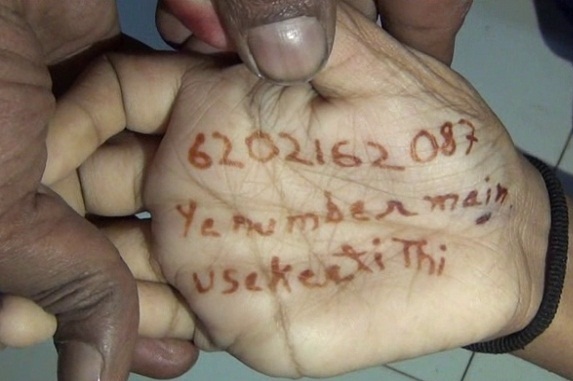 6202162087
Ye number main
use kerti Thi